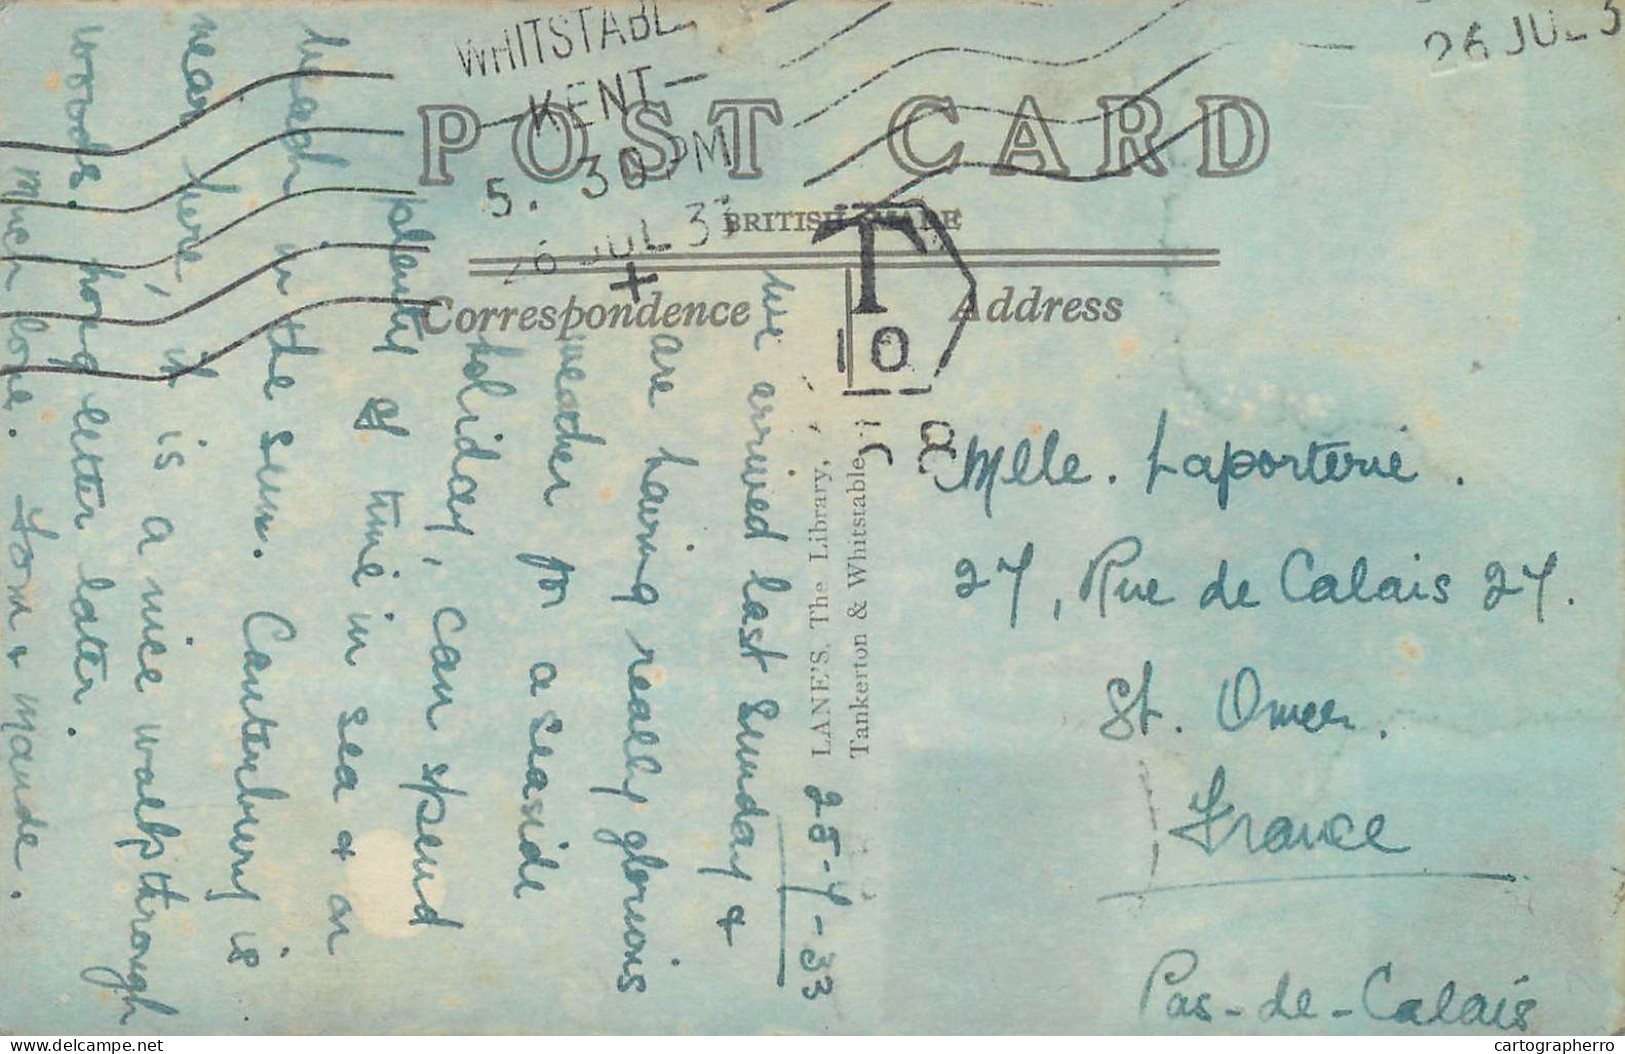 WHITSTABL
KENT
5. 30 PM
26 JUL 33
26 JUL 3
POST CARD
BRITISH MADE
T
10
Correspondence
Address
LANE'S, The Library,
Tankerton & Whitstable
25-7-33
We arrived last Sunday &
are having really glorious
weather for a seaside
holiday, can spend
plenty of time in sea & on
beach in the sun. Canterbury is
near here, it is a nice walk through
woods. Long letter later.
Much love. Tom & Maude.
Mlle. Laporterie.
27, Rue de Calais 27.
St. Omer.
France
Pas-de-Calais
www.delcampe.net
cartographerro